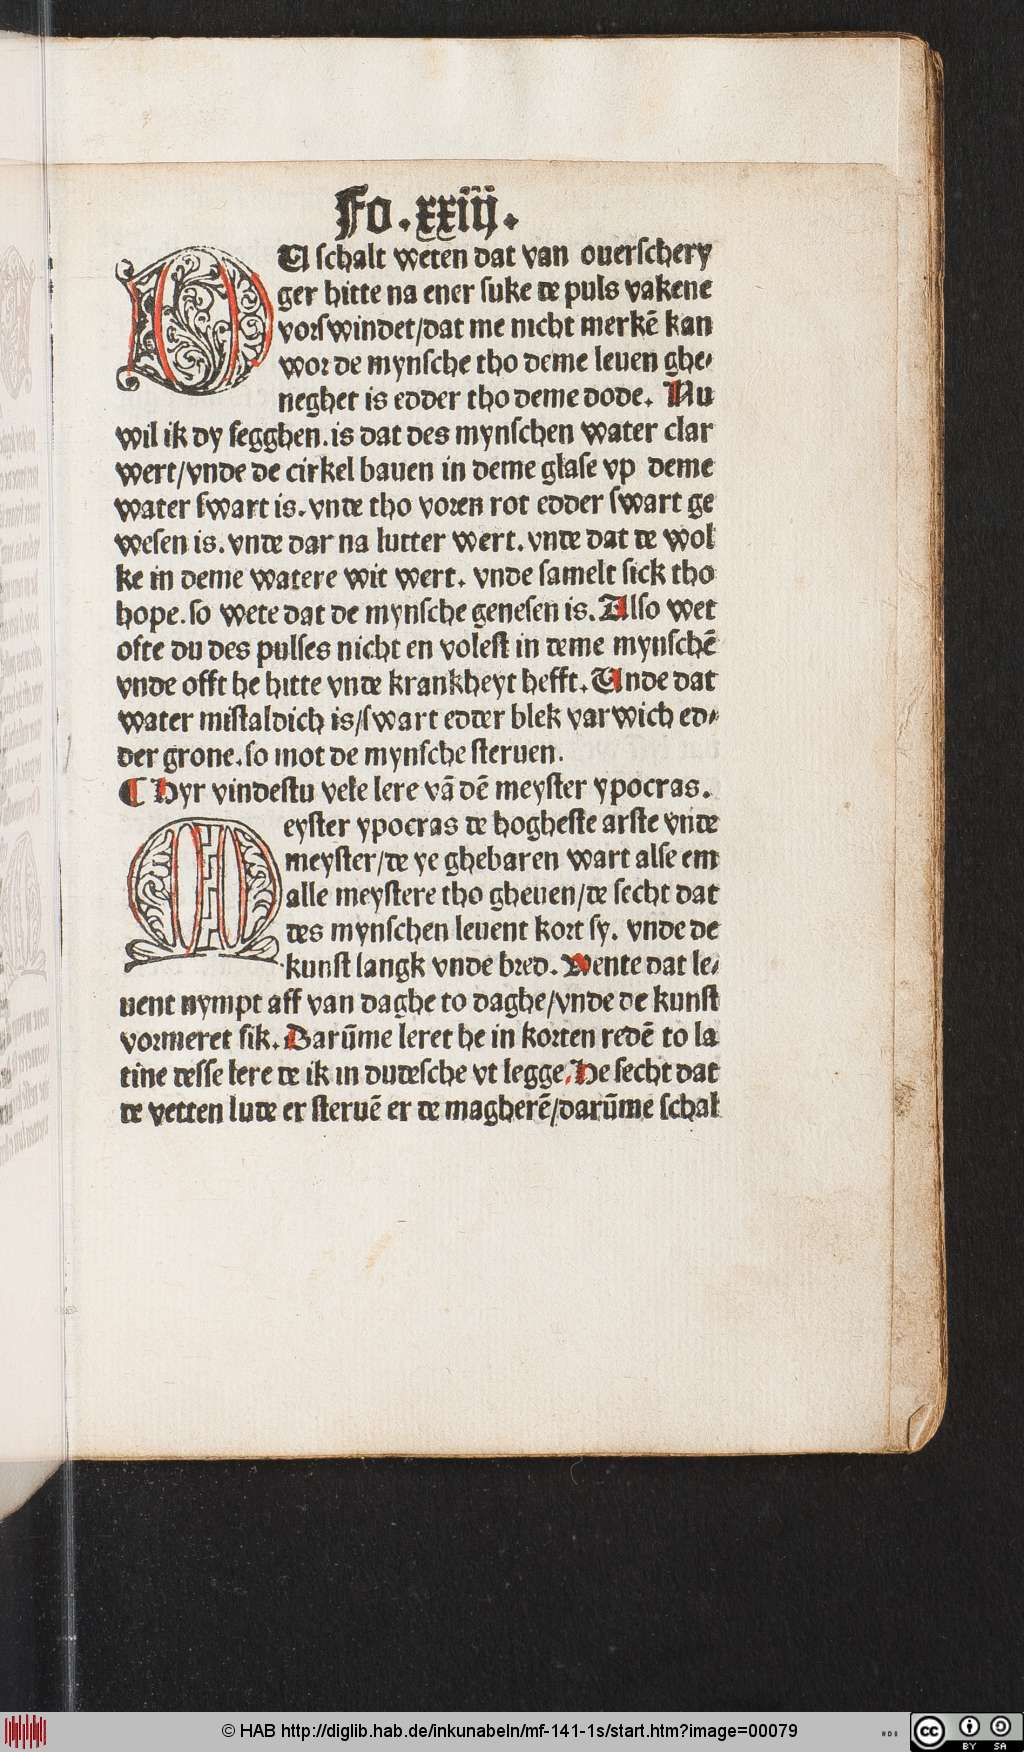 Fo.xxiij.
DU schalt weten dat van ouerschery
ger hitte na ener suke de puls vakene
vorswindet/dat me nicht merkē kan
wor de mynsche tho deme leuen ghe-
neghet is edder tho deme dode. Nu
wil ik dy segghen.is dat des mynschen water clar
wert/vnde de cirkel bauen in deme glase vp deme
water swart is.vnde tho voren rot edder swart ge
wesen is.vnde dar na lutter wert.vnde dat de wol
ke in deme watere wit wert. vnde samelt sick tho
hope.so wete dat de mynsche genesen is.Also wet
ofte du des pulses nicht en volest in deme mynschē
vnde offt he hitte vnde krankheyt hefft.Unde dat
water mistaldich is/swart edder blek varwich ed-
der grone.so mot de mynsche steruen.
¶ Hyr vindestu vele lere vā dē meyster ypocras.
Meyster ypocras de hogheste arste vnde
meyster/de ye ghebaren wart alse em
alle meystere tho gheuen/de secht dat
des mynschen leuent kort sy. vnde de
kunst langk vnde bred. Wente dat le-
uent nympt aff van daghe to daghe/vnde de kunst
vormeret sik.Darūme leret he in korten redē to la
tine desse lere de ik in dudesche vt legge.He secht dat
de vetten lude er steruē er de magherē/darūme schal
© HAB http://diglib.hab.de/inkunabeln/mf-141-1s/start.htm?image=00079
cc BY SA